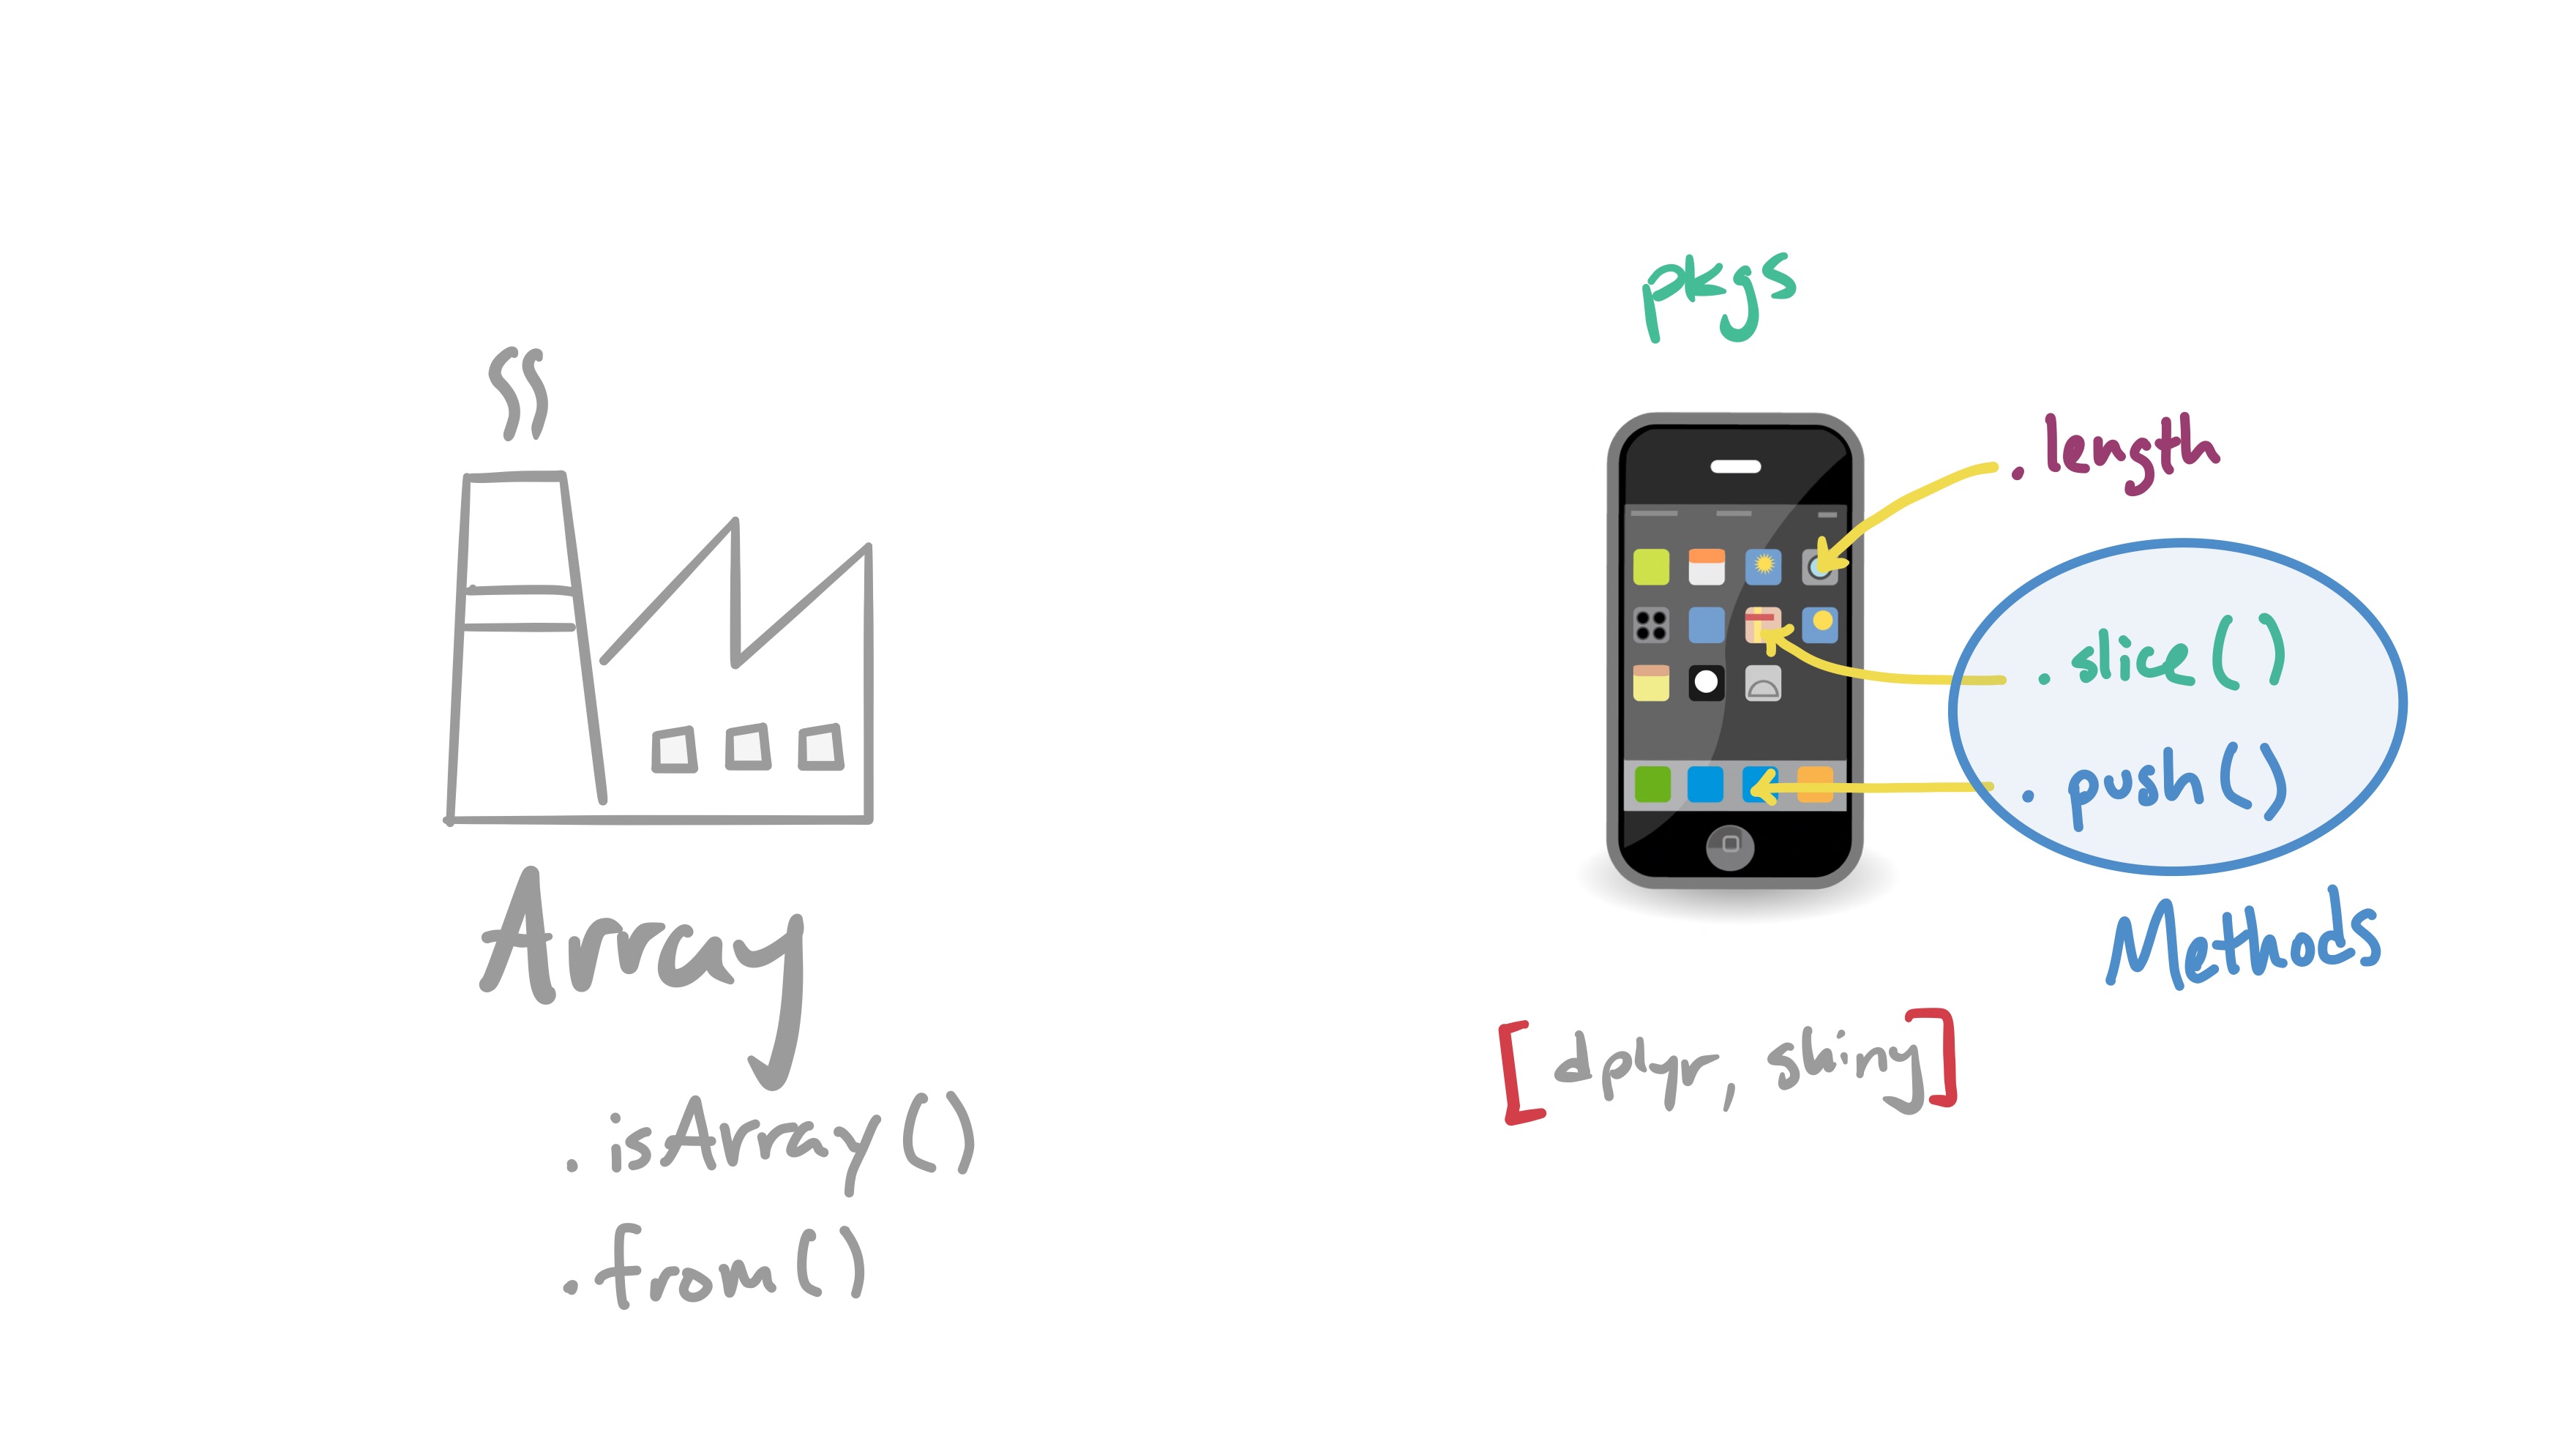 Array
.isArray()
.from()
pkgs
.length
.slice()
.push()
Methods
[dplyr, shiny]